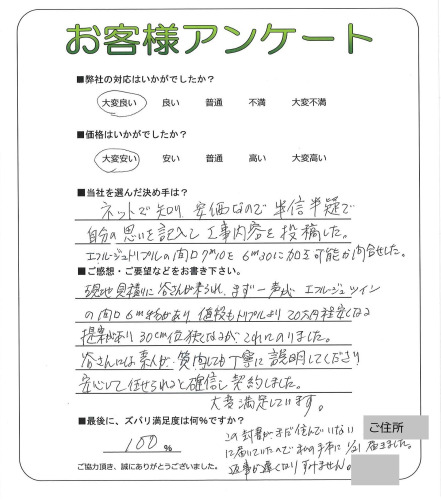 お客様アンケート
■弊社の対応はいかがでしたか?
大変良い 良い 普通 不満 大変不満
■価格はいかがでしたか?
大変安い 安い 普通 高い 大変高い
■当社を選んだ決め手は?
ネットで知り、安価なので半信半疑で
自分の思いを記入し工事内容を投稿した。
エフルージュトリプルの間口を6m30に加工可能か問合せした。
■ご感想・ご要望などをお書き下さい。
現地見積りに谷さんが来られ、まず一声が エフルージュツイン
の間口6m物があり 値段もトリプルより20万円程安くなる
提案があり 30cm位狭くなるが、これにのりました。
谷さんには素人が質問しても丁寧に説明してくださり
安心して任せられると確信し契約しました。
大変満足しています。
■最後に、ズバリ満足度は何%ですか?
100%
ご協力頂き、誠にありがとうございました。
この封書がまだ住んでいない
に届いていたので私の手本に 1/21 届きました。
返事が遅くなりすみません。
ご住所